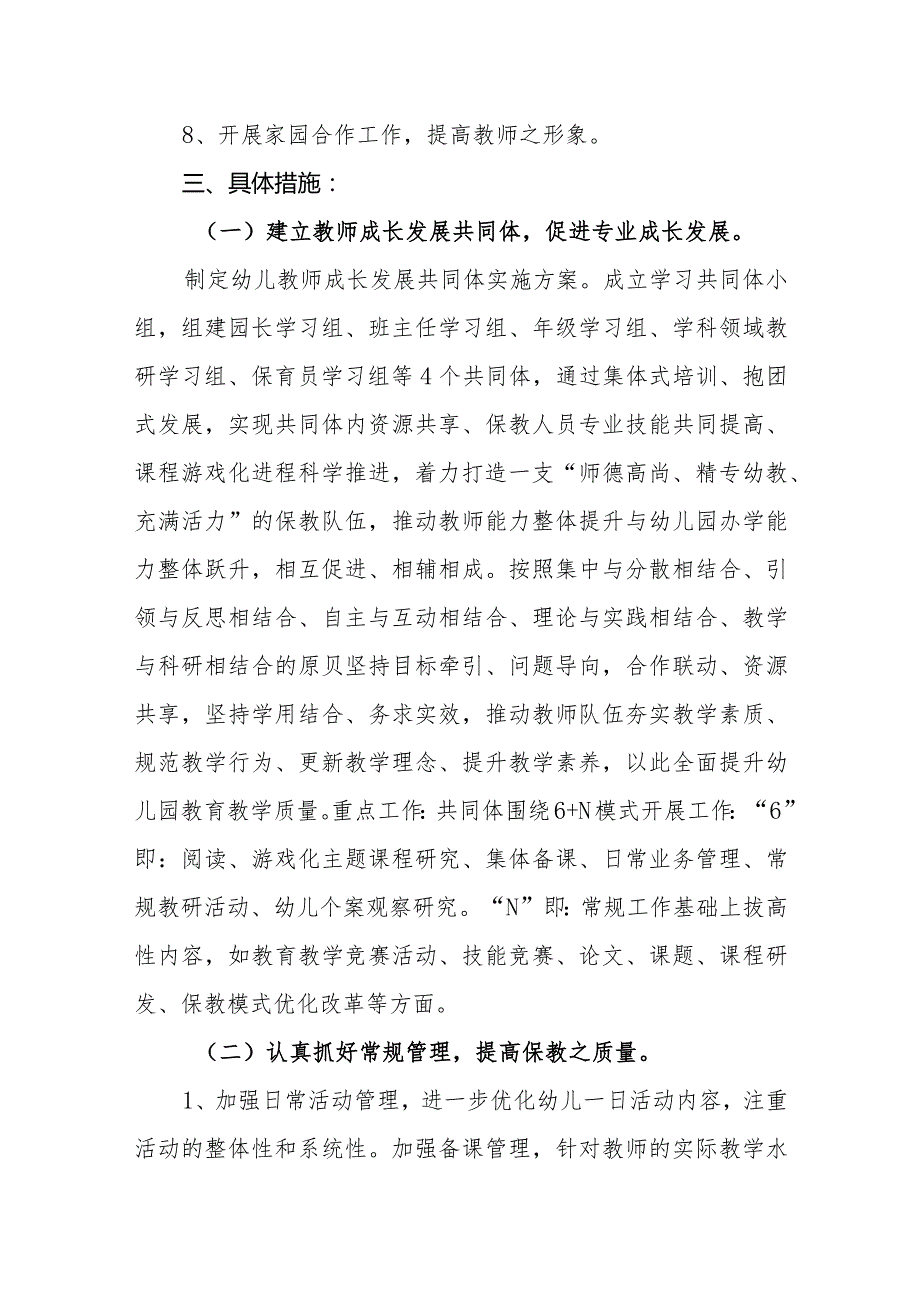 8、开展家园合作工作，提高教师之形象。
三、具体措施：
（一）建立教师成长发展共同体，促进专业成长发展。
制定幼儿教师成长发展共同体实施方案。成立学习共同体小
组，组建园长学习组、班主任学习组、年级学习组、学科领域教
研学习组、保育员学习组等 4 个共同体，通过集体式培训、抱团
式发展，实现共同体内资源共享、保教人员专业技能共同提高、
课程游戏化进程科学推进，着力打造一支“师德高尚、精专幼教、
充满活力”的保教队伍，推动教师能力整体提升与幼儿园办学能
力整体跃升，相互促进、相辅相成。按照集中与分散相结合、引
领与反思相结合、自主与互动相结合、理论与实践相结合、教学
与科研相结合的原贝坚持目标牵引、问题导向，合作联动、资源
共享，坚持学用结合、务求实效，推动教师队伍夯实教学素质、
规范教学行为、更新教学理念、提升教学素养，以此全面提升幼
儿园教育教学质量。重点工作：共同体围绕6+N模式开展工作：“6”
即：阅读、游戏化主题课程研究、集体备课、日常业务管理、常
规教研活动、幼儿个案观察研究。“N”即：常规工作基础上拔高
性内容，如教育教学竞赛活动、技能竞赛、论文、课题、课程研
发、保教模式优化改革等方面。
（二）认真抓好常规管理，提高保教之质量。
1、加强日常活动管理，进一步优化幼儿一日活动内容，注重
活动的整体性和系统性。加强备课管理，针对教师的实际教学水